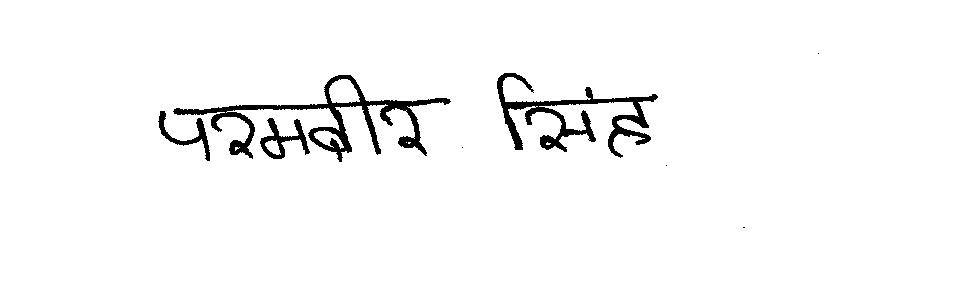 परमबीर सिंह